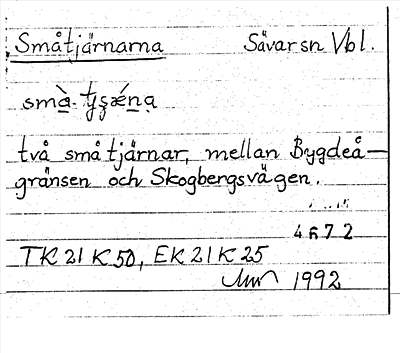 Småtjärnarna Sävar sn Vbl.
två små tjärnar, mellan Bygdeå-
gränsen och Skogbergsvägen.
4672
TK 21 K 50, EK 21 K 25
1992